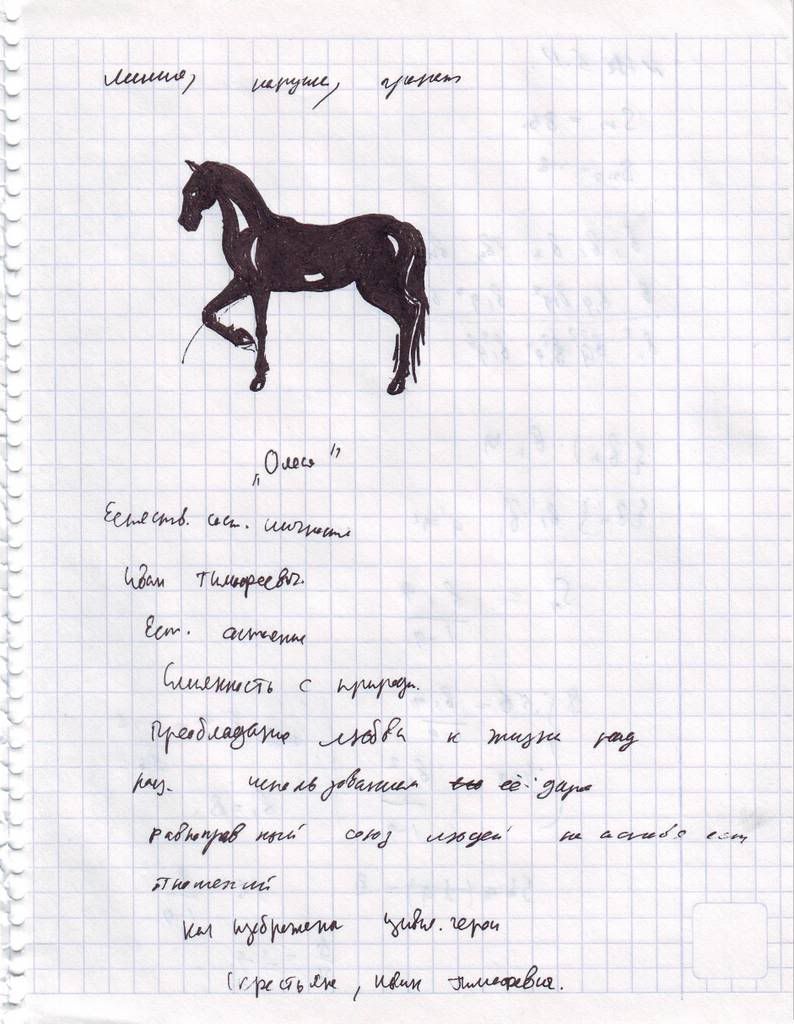 „Олеся"
Естеств. сост. личности
Иван Тимофеевич.
Ест.
Слиянность с природ.
Преобладание любви к жизни над
раз. использованием её дара
равноправный союз людей на основе ест
отношений
Как изображена цивил. герои
(крестьяне, Иван Тимофевич.